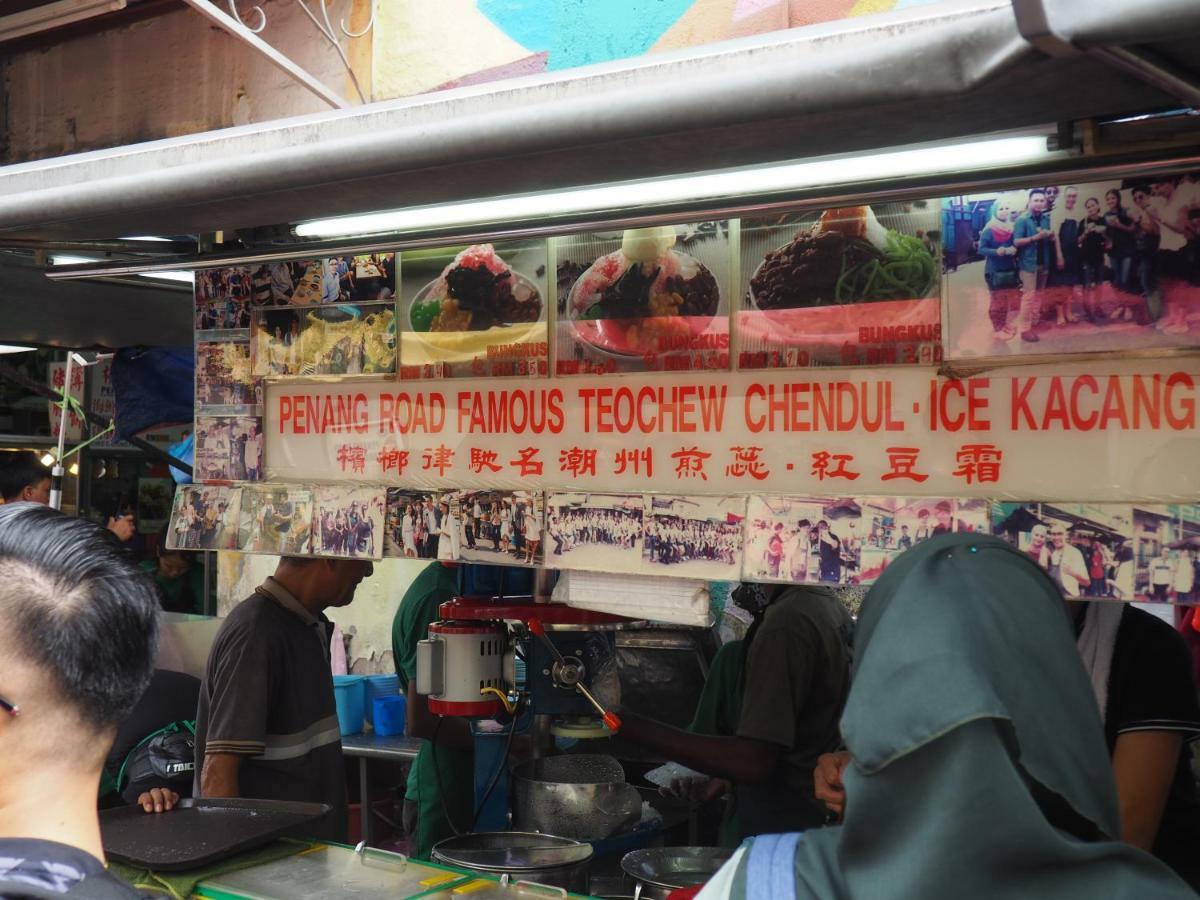 BUNGKUS
BUNGKUS
BUNGKUS
PENANG ROAD FAMOUS TEOCHEW CHENDUL·ICE KACANG
檳榔律馳名潮州煎蕊·紅豆霜